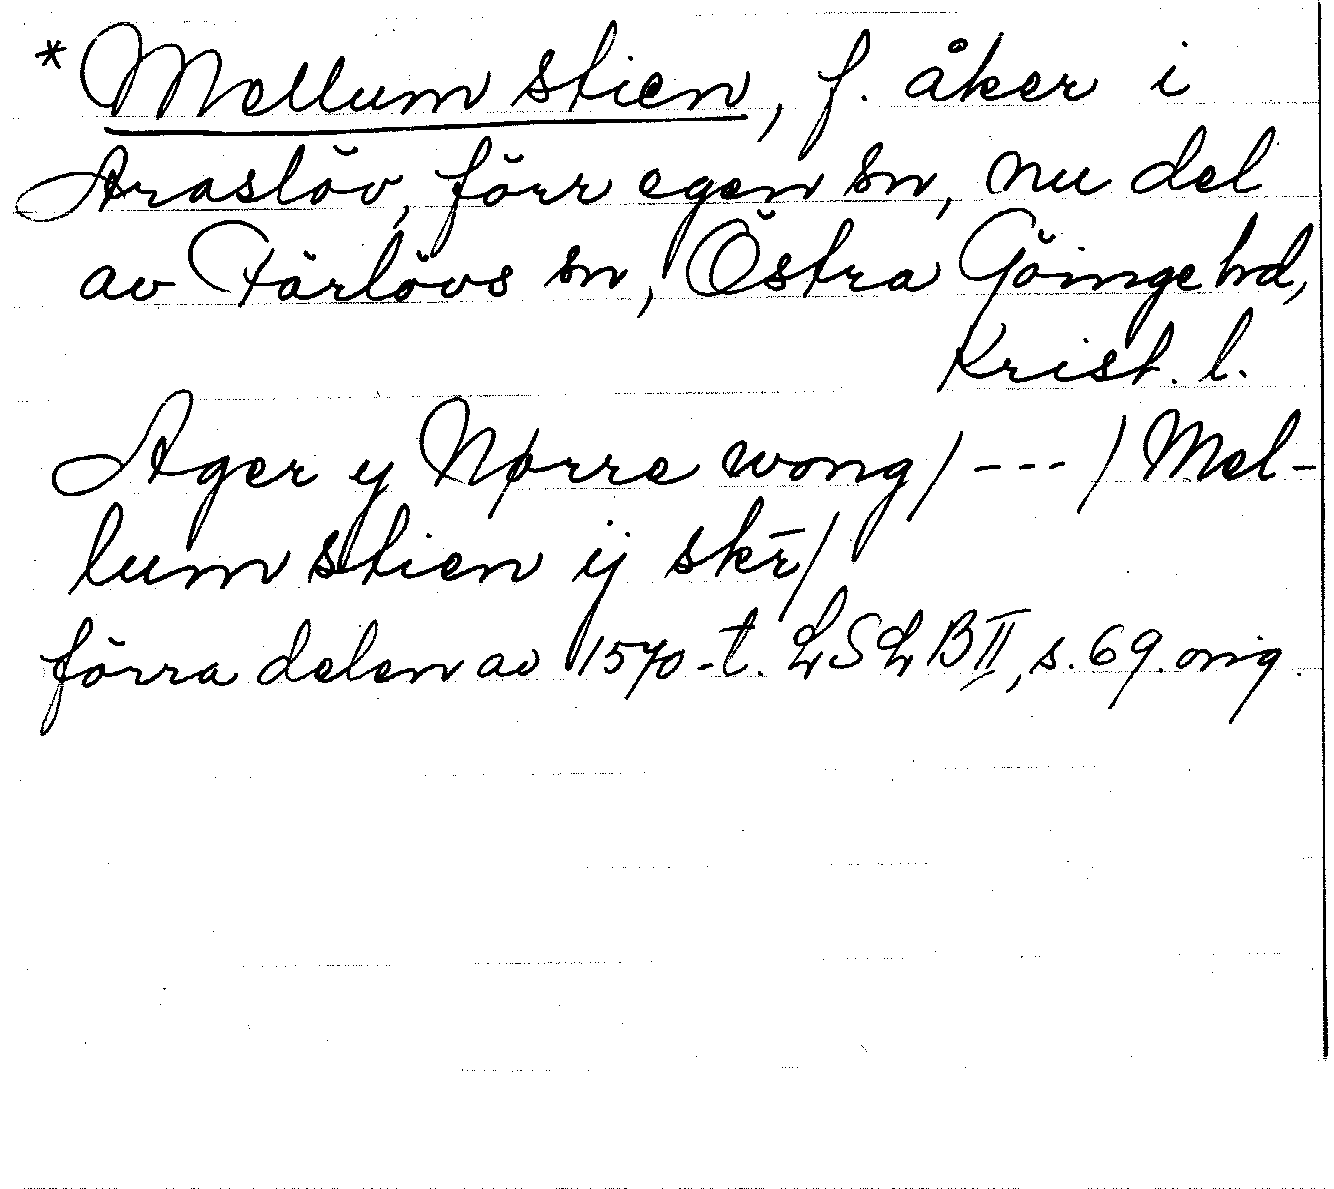 * Mellum stien, f. åker i
Araslöv, förr egen sn, nu del
av Färlövs sn, Östra Göinge hd,
Krist. l.
Ager y Nørre wong / --- / Mel-
lum stien ij skr̄ /
förra delen av 1570-t. LSLB II, s. 69. orig.